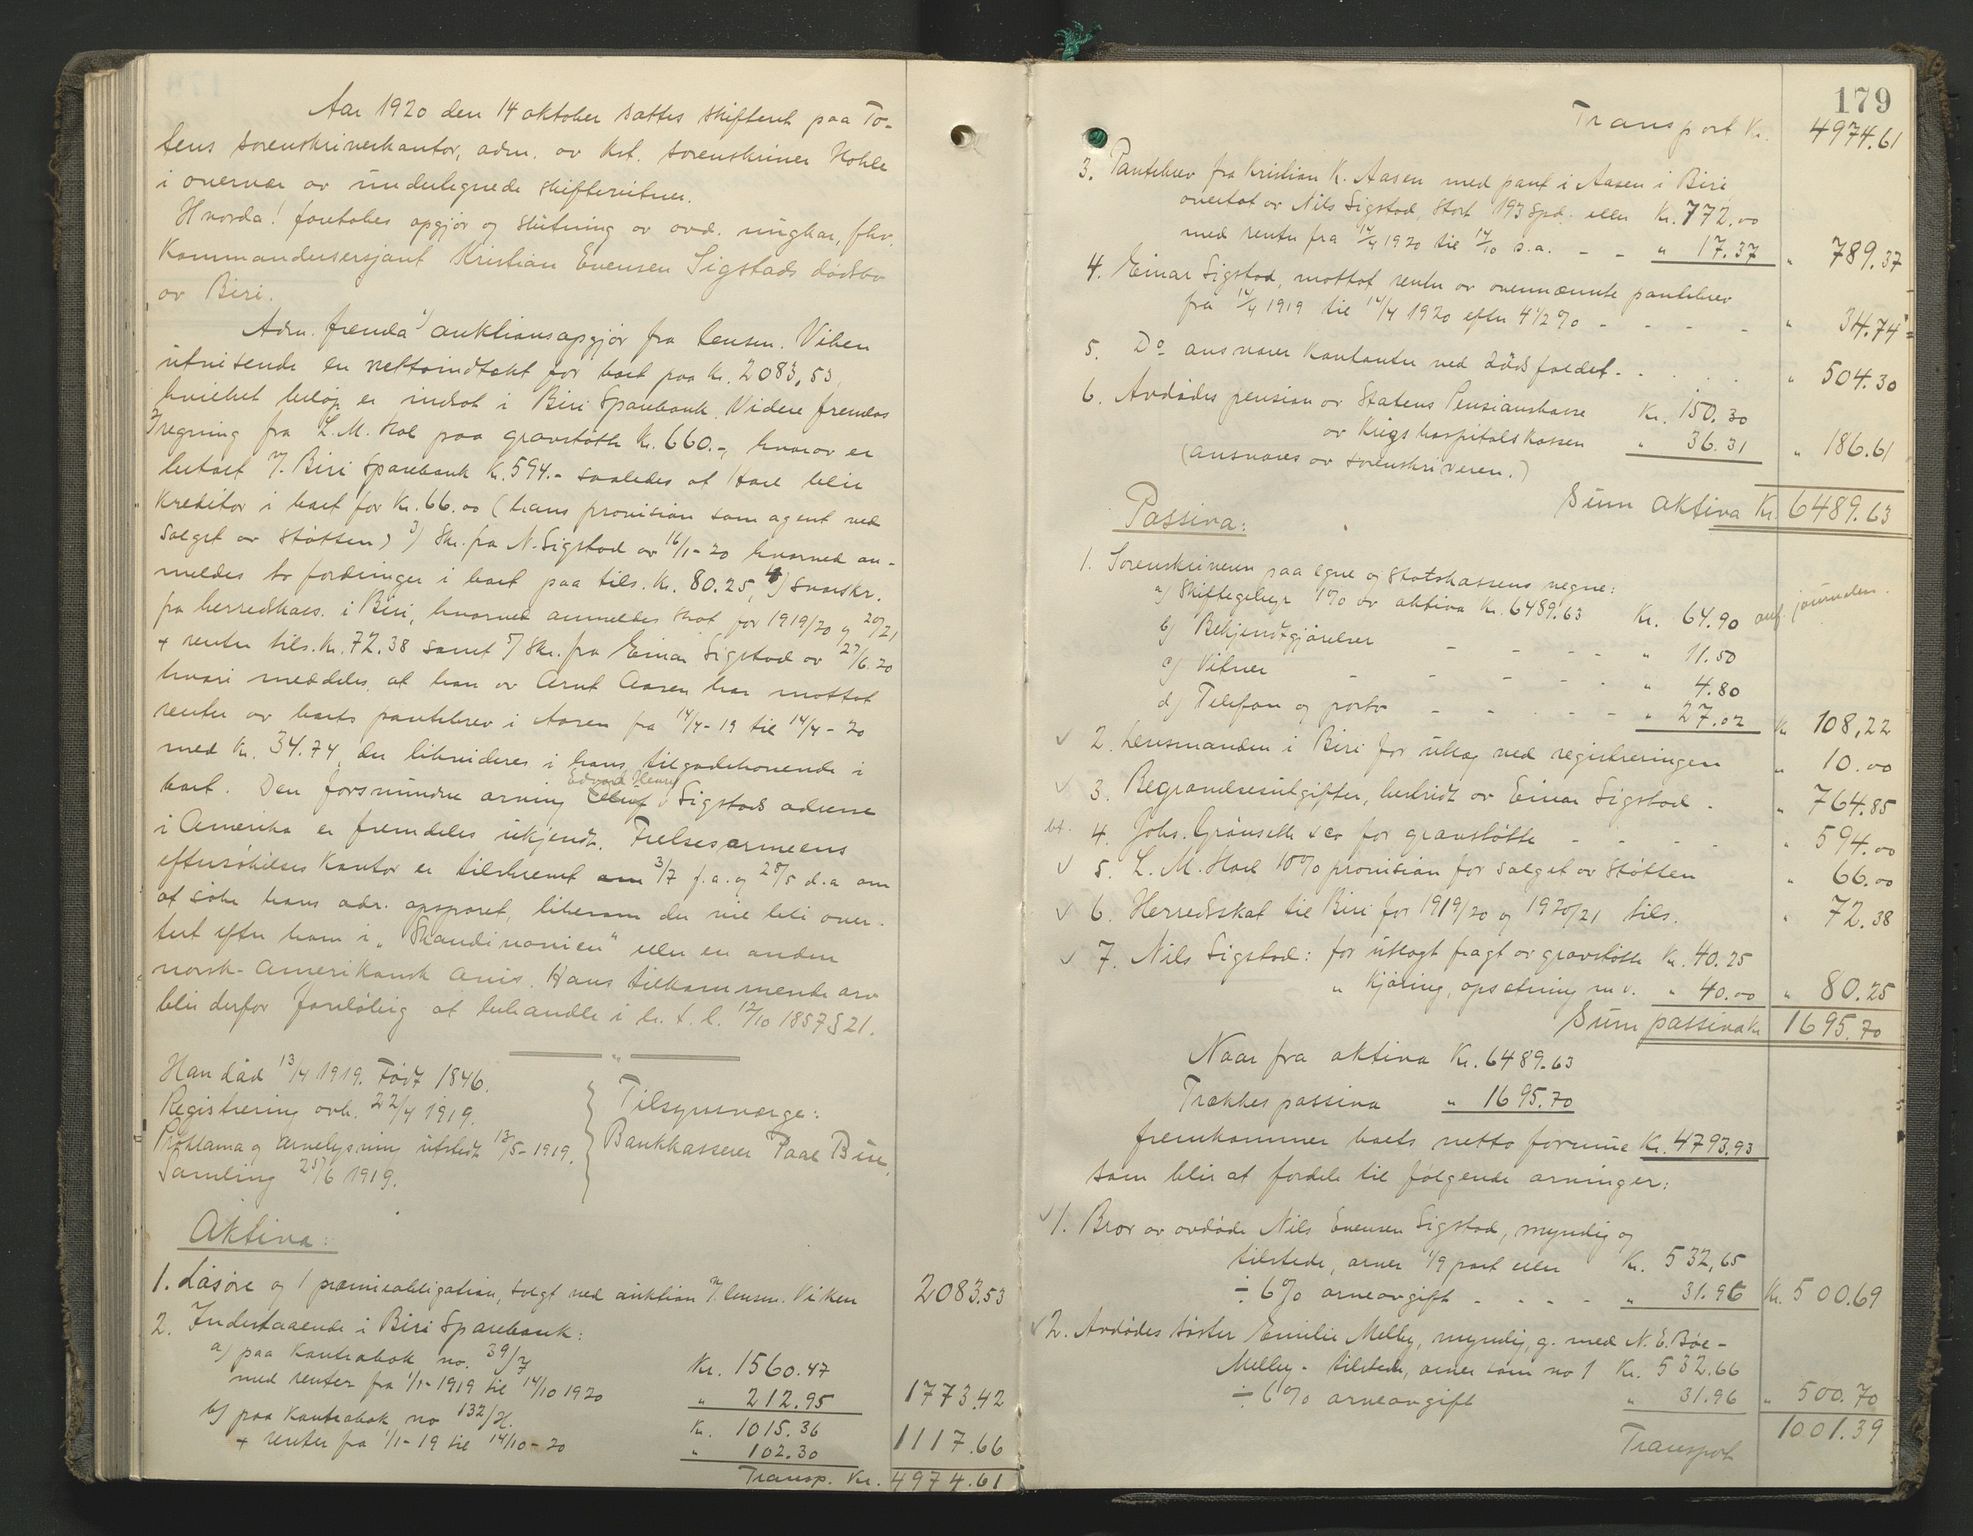 Aar 1920 den 14 oktober sattes skifteret paa To-
tens sorenskriverkontor, adm. av kst. sorenskriver Hohle
i overvær av undertegnede skiftevitner.
Hvorda! foretokes opgjør og slutning av avd. ungkar, fhv.
Kommandersersjant Kristian Evensen Sigstads dødsbo
av Biri.
Adm. fremla 1) auktionsopgjør fra lensm. Viken
utvisende en nettoindtækt for boet paa Kr. 2083,53,
hvilket beløp er indsat i Biri Sparebank. Videre fremlas
2) regning fra L. M. Hoel paa gravstøtte Kr. 660.-, hvorav er
betalt v. Biri Sparebank Kr. 594.- saaledes at Hoel blir
Kreditor i boet for Kr. 66.00 (hans provision som agent ved
salget av støtten) 3) Skr. fra N. Sigstad av 16/1-20 hvorved an-
meldes to fordringer i boet paa tils. Kr. 80.25, 4) svarskr.
fra herredskass. i Biri, hvorved anmeldes skat for 1919/20 og 20/21
+ renter tils. Kr. 72.38 samt 5) Skr. fra Einar Sigstad av 27/6.20
hvori meddeles, at han av Arnt Aasen har mottat
renter av boets pantebrev i Aasen fra 14/4-19 til 14/4-20
med Kr. 34.74, der likvideres i hans tilgodehavende i
boet. Den forsvundne arving Edvard Henry Sigstads adresse
i Amerika er fremdeles ukjendt. Frelsesarmeens
eftersøkelses Kontor er tilskrevet 3/7 f.a. og 28/5 d.a. om
at søke hans adr. opsporet, likesom der vil bli aver-
tert efter ham i "Skandinavien" eller en anden
norsk-Amerikansk avis. Hans tilkommende arv
blir derfor foreløbig at behandle i h. t. l. 12/10 1857 § 21.
Han død 13/4 1919. Født 1846.
Registrering avh. 22/4 1919.
Proklama og arvelysning utstedt 13/5-1919.
Samling 25/6 1919.
Tilsynsværge:
Bankkasserer Paal Biri.
Aktiva:
1. Løsøre og 1 præmieobligation, solgt ved auktion v. lensm. Viken 2083.53
2. Indestaaende i Biri Sparebank:
a) paa Kontrabok no. 39/7 Kr. 1560.47
med renter fra 1/1-1919 til 14/10 1920 " 212.95 1773.42
b) paa Kontrabok no 132/H. Kr. 1015.36
+ renter fra 1/1-19 til 14/10-20 " 102.30 1117.66
Transp. Kr. 4974.61
179
Transport Kr. 4974.61
3. Pantebrev fra Kristian K. Aasen med pant i Aasen i Biri
overtat av Nils Sigstad, stort 193 Spd. eller Kr. 772.00
med renter fra 14/4 1920 til 14/10 s.a. - - " 17.37 " 789.37
4. Einar Sigstad, mottat renter av ovennævnte pantebrev
fra 14/4 1919 til 14/4 1920 efter 4 1/2 % - - - - - " 34.74
5. Do ansvarer Kontanter ved dødsfaldet - . . . . " 504.30
6. Avdødes pension av Statens Pensionskasse Kr. 150.30
av Krigshospitalskassen " 36.31 " 186.61
(ansvares av sorenskriveren.)
Sum aktiva Kr. 6489.63
Passiva:
1. Sorenskriveren paa egne og Statskassens vegne:
a) Skiftegebyr 1% av aktiva Kr. 6489.63 Kr. 64.90 anf. journalen.
b) Bekjendtgjørelser - - - - " 11.50
c) Vitner - - - - - " 4.80
d) Telefon og porto - - - - " 27.02 Kr. 108,22
✓ 2. Lensmanden i Biri for utlæg ved registreringen " 10.00
✓ 3. Begravelsesutgifter, bestridt av Einar Sigstad - " 764.85
bt. 4. Johs. Grønseth & co for gravstøtte - - - - " 594.00
✓ 5. L. M. Hoel 10% provision for salget av støtten " 66.00
✓ 6. Herredsskat til Biri for 1919/20 og 1920/21 tils. " 72.38
✓ 7. Nils Sigstad: for utlagt fragt av gravstøtte Kr. 40.25
" Kjøring, opsetning m.v. " 40.00 " 80.25
Sum passiva Kr. 1695.70
Naar fra aktiva Kr. 6489.63
Trækkes passiva " 1695.70
fremkommer boets netto formue Kr. 4793.93
som blir at fordele til følgende arvinger:
✓ 1. Bror av avdøde Nils Evensen Sigstad, myndig og
tilstede, arver 1/9 part eller Kr. 532,65
÷ 6% arveavgift - - - - " 31.96 Kr. 500.69
✓ 2. Avdødes søster Emilie Melby, myndig, g. med N. E. Bøe-
Melby - tilstede, arver som no 1 Kr. 532.66
÷ 6% arveavgift " 31.96 " 500.70
Transport 1001.39